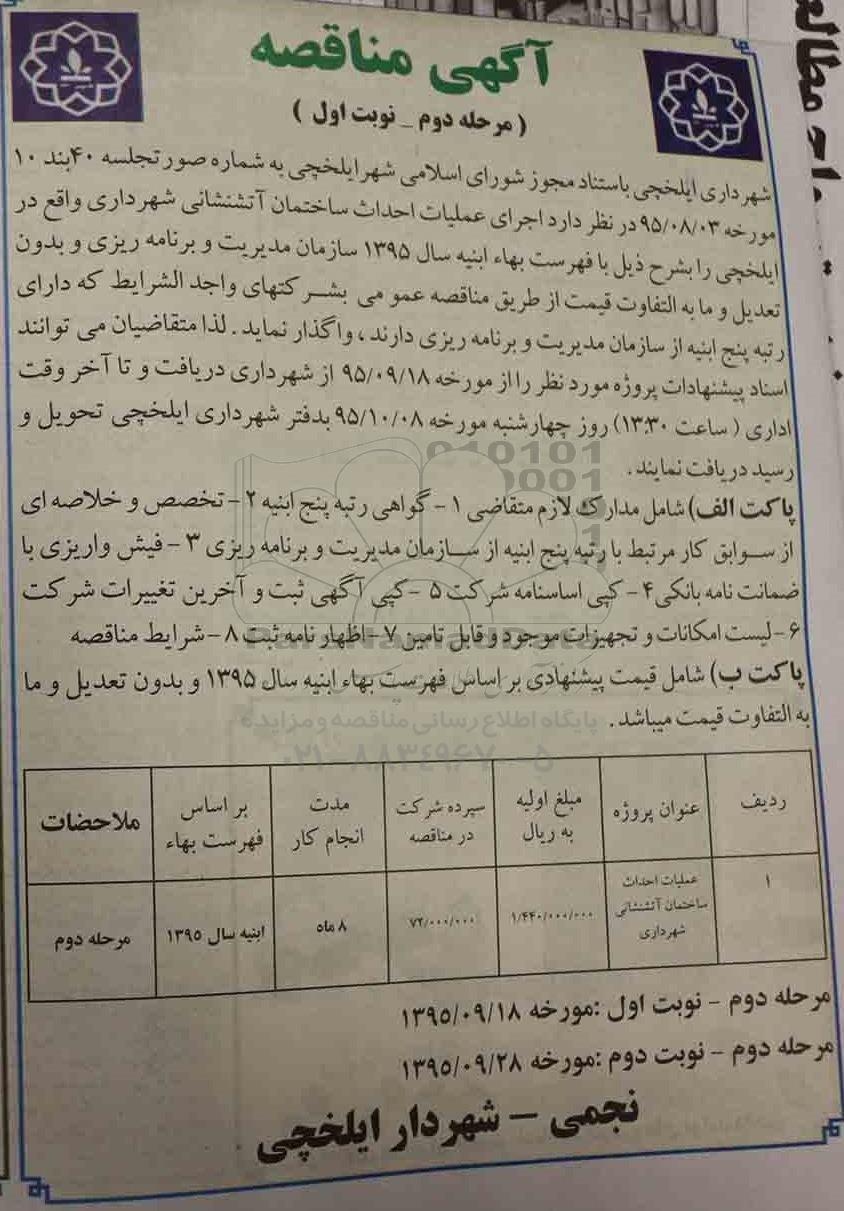 آگهی مناقصه
( مرحله دوم _ نوبت اول )
شهرداری ایلخچی باستناد مجوز شورای اسلامی شهر ایلخچی به شماره صورتجلسه ۴۰بند ۱۰
مورخه ۹۵/۰۸/۰۳ در نظر دارد اجرای عملیات احداث ساختمان آتشنشانی شهرداری واقع در
ایلخچی را بشرح ذیل با فهرست بهاء ابنیه سال ۱۳۹۵ سازمان مدیریت و برنامه ریزی و بدون
تعدیل و ما به التفاوت قیمت از طریق مناقصه عمو می بشرکتهای واجد الشرایط که دارای
رتبه پنج ابنیه از سازمان مدیریت و برنامه ریزی دارند ، واگذار نماید . لذا متقاضیان می توانند
اسناد پیشنهادات پروژه مورد نظر را از مورخه ۹۵/۰۹/۱۸ از شهرداری دریافت و تا آخر وقت
اداری ( ساعت ۱۳:۳۰) روز چهارشنبه مورخه ۹۵/۱۰/۰۸ بدفتر شهرداری ایلخچی تحویل و
رسید دریافت نمایند .
پاکت الف) شامل مدارک لازم متقاضی ۱ - گواهی رتبه پنج ابنیه ۲ - تخصص و خلاصه ای
از سوابق کار مرتبط با رتبه پنج ابنیه از سازمان مدیریت و برنامه ریزی ۳ - فیش واریزی یا
ضمانت نامه بانکی ۴ - کپی اساسنامه شرکت ۵ - کپی آگهی ثبت و آخرین تغییرات شرکت
۶ - لیست امکانات و تجهیزات موجود و قابل تامین ۷ - اظهار نامه ثبت ۸ - شرایط مناقصه
پاکت ب) شامل قیمت پیشنهادی بر اساس فهرست بهاء ابنیه سال ۱۳۹۵ و بدون تعدیل و ما
به التفاوت قیمت میباشد .
پایگاه اطلاع رسانی مناقصه و مزایده
۰۲۱-۸۸۳۴۹۶۷۰-۵
ردیف عنوان پروژه مبلغ اولیه به ریال سپرده شرکت در مناقصه مدت انجام کار بر اساس فهرست بهاء ملاحضات
۱ عملیات احداث ساختمان آتشنشانی شهرداری ۱/۴۴۰/۰۰۰/۰۰۰ ۷۲/۰۰۰/۰۰۰ ۸ ماه ابنیه سال ۱۳۹۵ مرحله دوم
مرحله دوم - نوبت اول :مورخه ۱۳۹۵/۰۹/۱۸
مرحله دوم - نوبت دوم :مورخه ۱۳۹۵/۰۹/۲۸
نجمی - شهردار ایلخچی